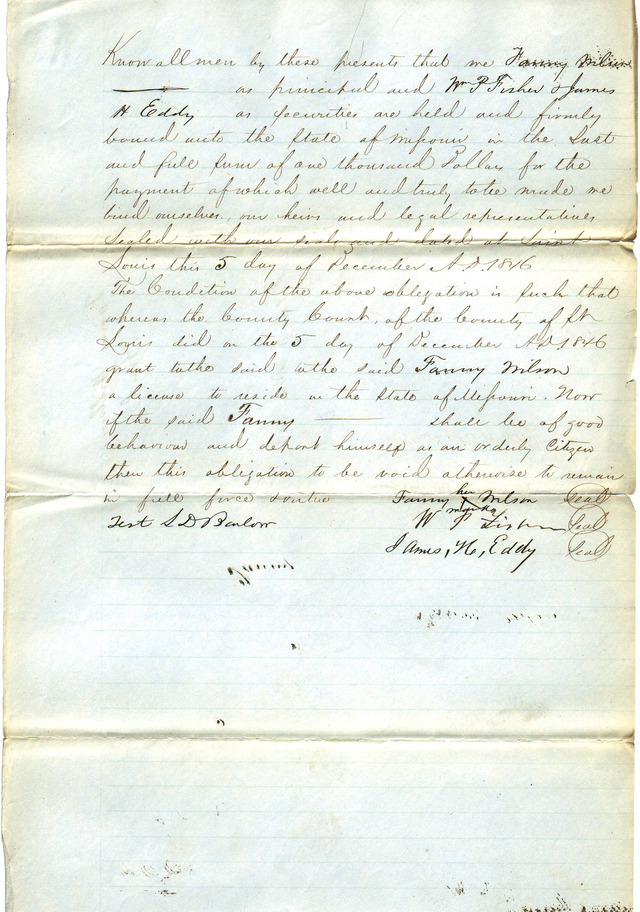 Know all men by these presents that we Fanny Wilson
as principal and Wm P Fisher & James
H Eddy as securities are held and firmly
bound unto the State of Missouri in the Just
and full sum of one thousand Dollars for the
payment of which well and truly to be made we
bind ourselves, our heirs and legal representatives
Sealed with our seals and dated at Saint
Louis this 5 day of December A.D. 1846
The Condition of the above obligation is such that
whereas the County Court, of the County of St
Louis did on the 5 day of December A.D. 1846
grant to the said to the said Fanny Wilson
a license to reside in the State of Missouri. Now
if the said Fanny shall be of good
behaviour and deport himself as an orderly Citizen
then this obligation to be void otherwise to remain
in full force
Fanny her X mark Wilson Seal
Test S D Barlow W P Fisher Seal
James, H, Eddy Seal